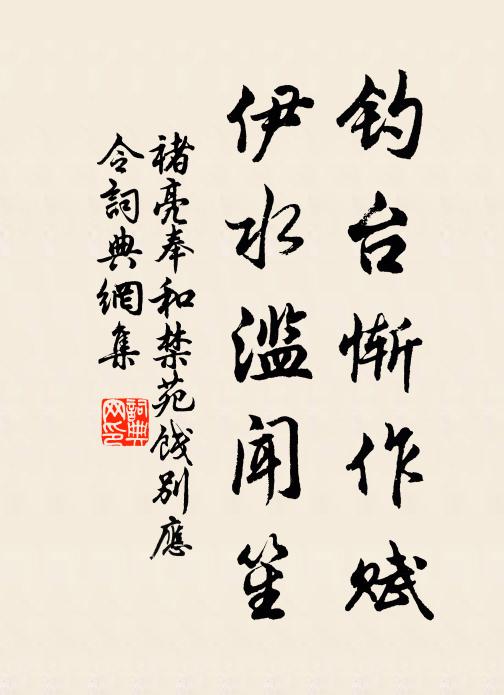 钓台惭作赋
伊水滥闻笙
褚亮奉和禁苑饯别應
令詞典網集
詞典
网印